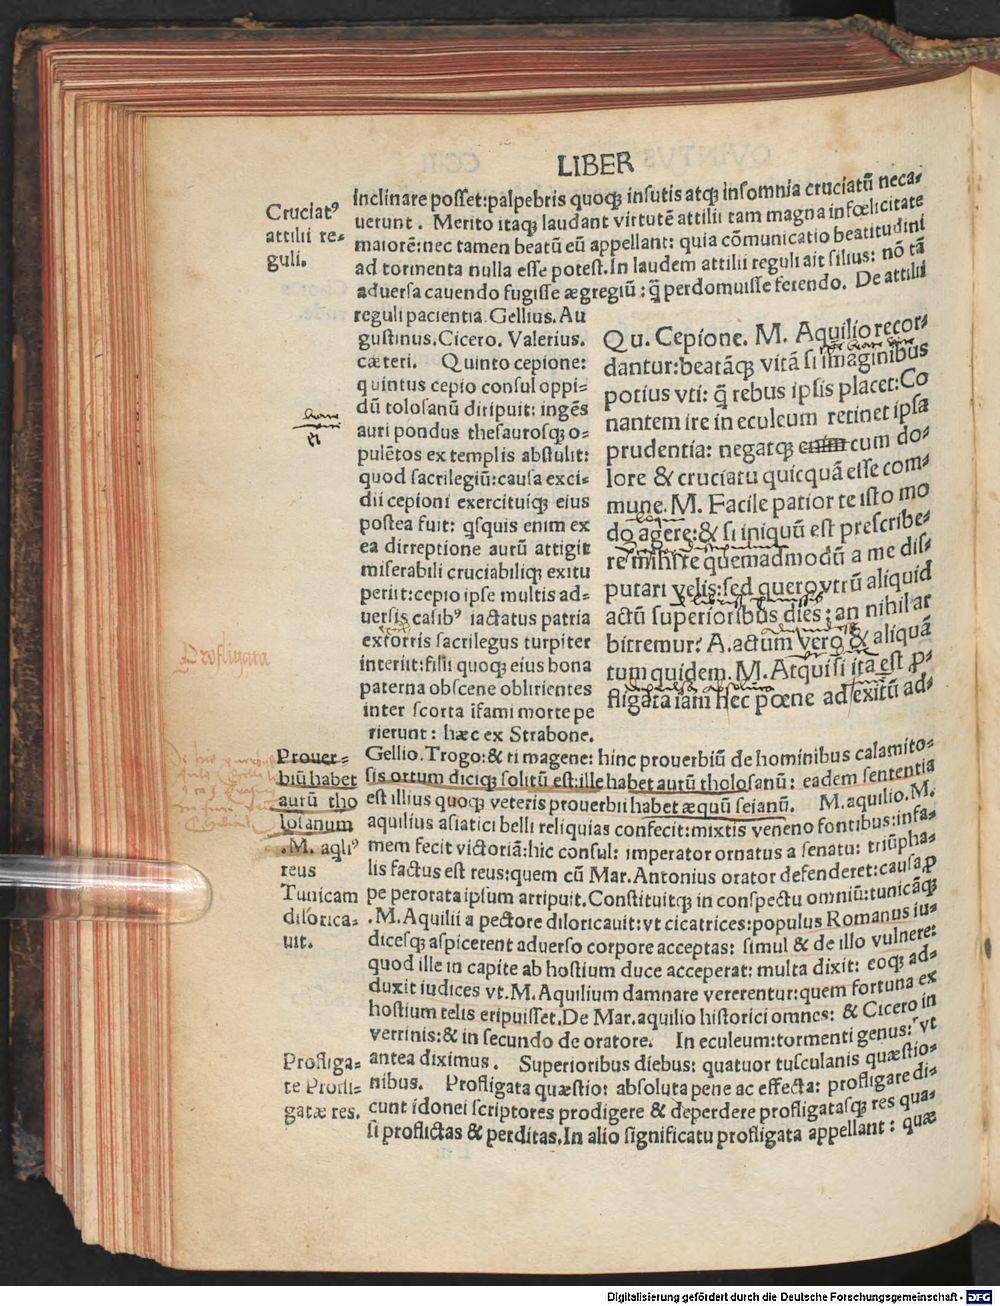 LIBER
inclinare posset:palpebris quoqꝫ insutis atqꝫ insomnia cruciatū neca⸗
uerunt . Merito itaqꝫ laudant virtutē attilii tam magna in fœlicitate
maiorē:nec tamen beatū eū appellant: quia cōmunicatio beatitudini
ad tormenta nulla esse potest.In laudem attilii reguli ait silius: nō tā
aduersa cauendo fugisse ægregiū : q̄ perdomuisse ferendo. De attilii
reguli pacientia.Gellius.Au
gustinus.Cicero. Valerius.
cæteri. Quinto cepione:
quintus cepio consul oppi⸗
dū tolosanū diripuit: ingēs
auri pondus thesaurosqꝫ o⸗
pulētos ex templis abstulit:
quod sacrilegiū:causa exci⸗
dii cepioni exercituiqꝫ eius
postea fuit: qͥsquis enim ex
ea dirreptione aurū attigit
miserabili cruciabiliqꝫ exitu
periit:cepio ipse multis ad⸗
uersis casibꝰ iactatus patria
extorris sacrilegus turpiter
interiit:filii quoqꝫ eius bona
paterna obscene oblirientes
inter scorta ifami morte pe
rierunt : hæc ex Strabone.
Qu. Cepione. M. Aquilio recor⸗
dantur:beatāqꝫ vitā si imaginibus
potius vti: q̄ rebus ipsis placet:Co
nantem ire in eculeum retinet ipsa
prudentia: negatqꝫ enim cum do⸗
lore & cruciatu quicquā esse com⸗
mune.M. Facile patior te isto mo
do agere:& si iniquū est prescribe⸗
re mihi te quemadmodū a me dis⸗
putari velis:sed quero vtrū aliquid
actū superioribus dies : an nihil ar
bitremur? A.actum vero & aliquā
tum quidem. M. Atqui si ita est ꝓ⸗
fligata iam hec pœne ad exitū ad⸗
Gellio.Trogo:& timagene: hinc prouerbiū de hominibus calamito⸗
sis ortum diciqꝫ solitū est:ille habet aurū tholosanū: eadem sententia
est illius quoqꝫ veteris prouerbii habet æquū seianū. M.aquilio.M.
aquilius asiatici belli reliquias confecit:mixtis veneno fontibus:infa⸗
mem fecit victoriā:hic consul: imperator ornatus a senatu: triūpha⸗
lis factus est reus:quem cū Mar.Antonius orator defenderet:causa ꝓ
pe perorata ipsum arripuit.Constituitqꝫ in conspectu omniū:tunicāqꝫ
.M.Aquilii a pectore diloricauit:vt cicatrices:populus Romanus iu⸗
dicesqꝫ aspicerent aduerso corpore acceptas: simul & de illo vulnere:
quod ille in capite ab hostium duce acceperat: multa dixit: eoqꝫ ad⸗
duxit iudices vt.M.Aquilium damnare vererentur:quem fortuna ex
hostium telis eripuisset.De Mar.aquilio historici omnes: & Cicero in
verrinis:& in secundo de oratore. In eculeum:tormenti genus: vt
antea diximus. Superioribus diebus: quatuor tusculanis quæstio⸗
nibus. Profligata quæstio: absoluta pene ac effecta: profligare di⸗
cunt idonei scriptores prodigere & deperdere profligatasqꝫ res qua⸗
si proflictas & perditas.In alio significatu profligata appellant : quæ
Cruciatꝰ
attilii re⸗
guli.
Profligata
Prouer⸗
biū habet
aurū tho
losanum
.M. aqliꝰ
reus
Tunicam
dilorica⸗
uit.
Profliga⸗
te Profli⸗
gatæ res.
Digitalisierung gefördert durch die Deutsche Forschungsgemeinschaft - DFG